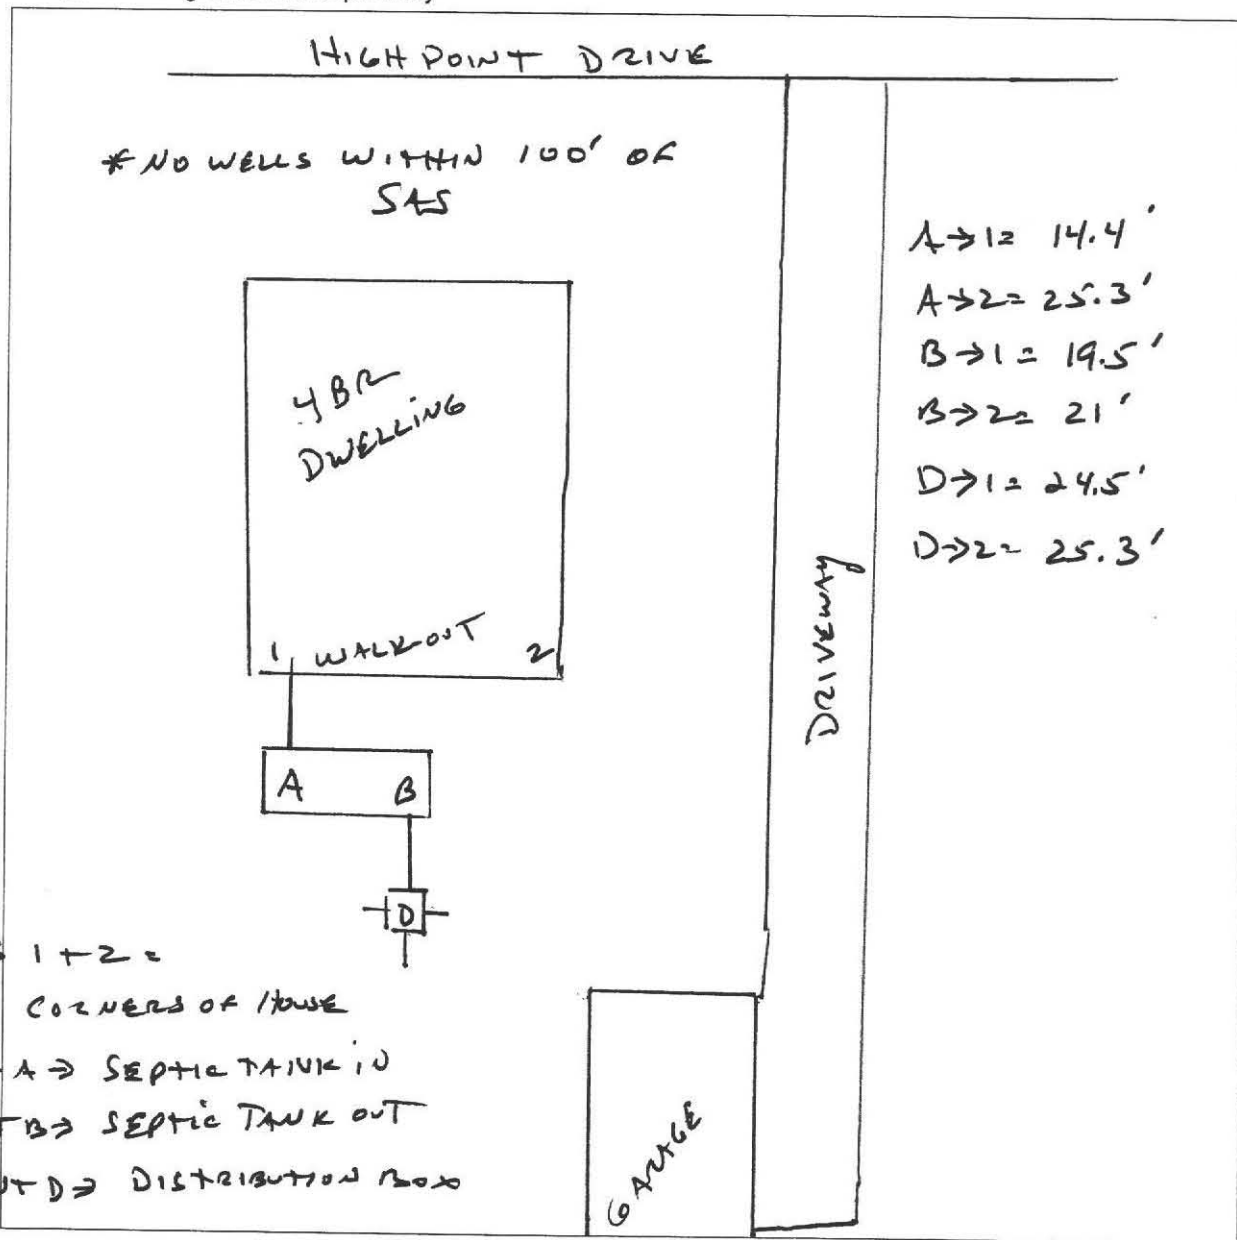 HIGH POINT DRIVE
* NO WELLS WITHIN 100' OF
SAS
A→1= 14.4'
A→2= 25.3'
B→1= 19.5'
B→2= 21'
D→1= 24.5'
D→2= 25.3'
4BR
DWELLING
1 WALK-OUT 2
DRIVEWAY
A B
D
1+2=
CORNERS OF HOUSE
A→ SEPTIC TANK IN
B→ SEPTIC TANK OUT
D→ DISTRIBUTION BOX
GARAGE